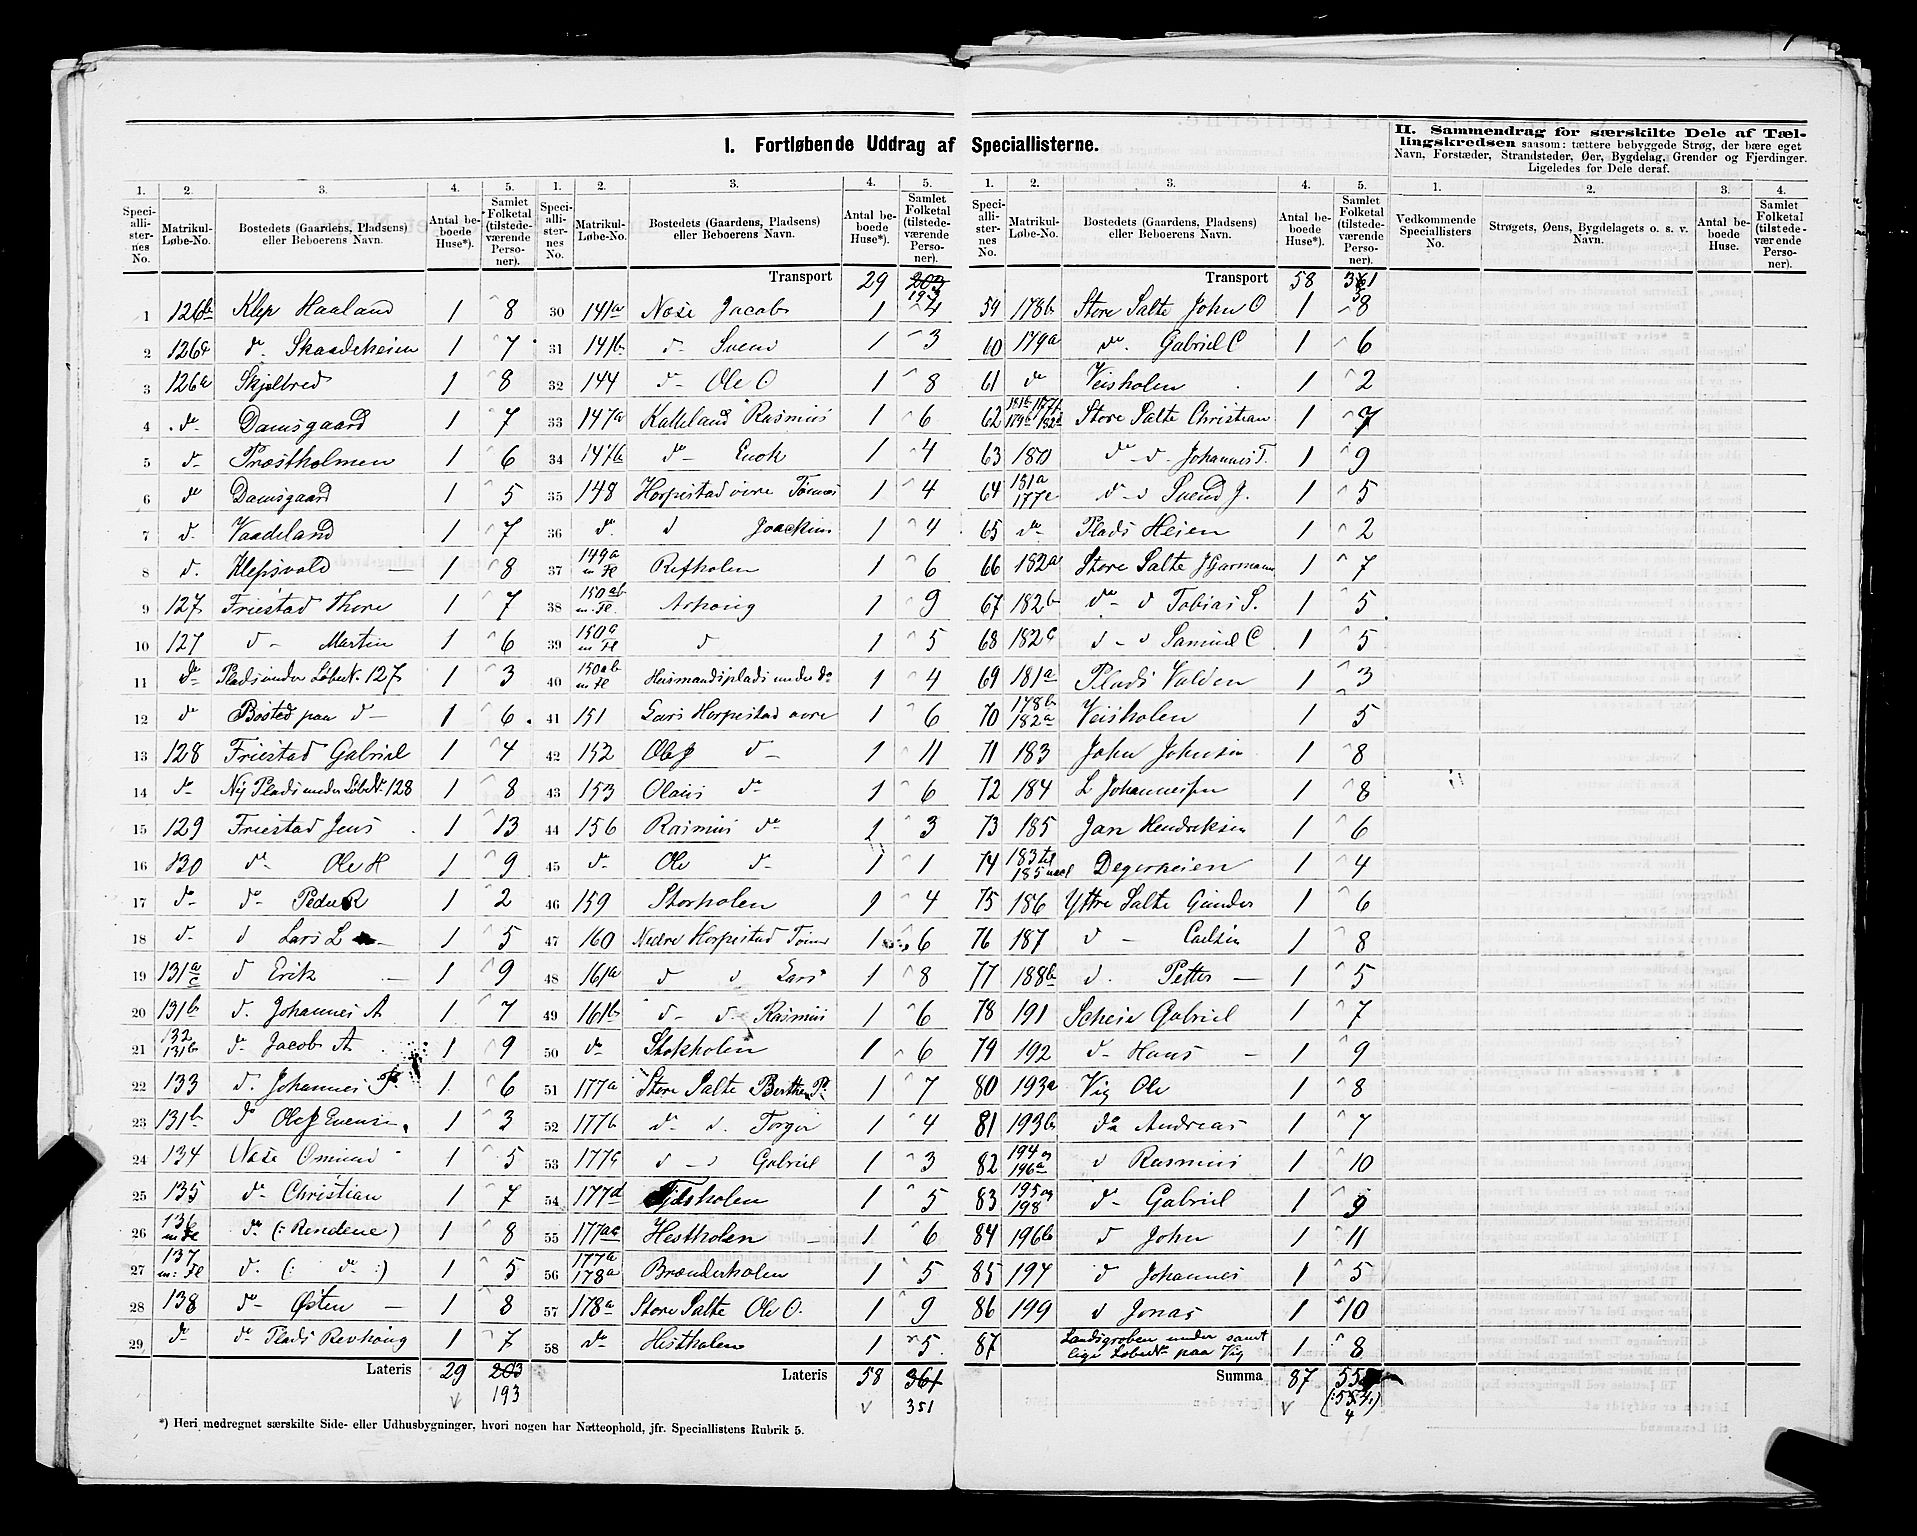 1
I. Fortløbende Uddrag af Speciallisterne.
II. Sammendrag for særskilte Dele af Tæl-
lingskredsen saasom: tættere bebyggede Strøg, der bære eget
Navn, Forstæder, Strandsteder, Øer, Bygdelag, Grender og Fjerdinger.
Ligeledes for Dele deraf.
1. 2. 3. 4. 5.
Speciallisternes No. Matrikul-Løbe-No. Bostedets (Gaardens, Pladsens) eller Beboerens Navn. Antal beboede Huse*). Samlet Folketal (tilstedeværende Personer).
1 126b Klep Haaland 1 8
2 126c do. Skaadeheien 1 7
3 126a Skjelbred 1 8
4 do Damsgaard 1 7
5 do Præstholmen 1 6
6 do Damsgaard 1 5
7 d. Vaadeland 1 7
8 d. Klepsvold 1 8
9 127 Friestad Thore 1 7
10 127 d - Martin 1 6
11 do Plads under Løbe No. 127 1 3
12 do Bosted paa d - 1 6
13 128 Friestad Gabriel 1 4
14 do Ny Plads under Løbe No. 128 1 8
15 129 Friestad Jens 1 13
16 130 do Ole H 1 9
17 do do Peder R 1 2
18 d. d Lars L 1 5
19 131a c d Erik 1 9
20 131b d. Johannes A 1 7
21 132 131b do Jacob A 1 9
22 133 d. Johannes 1 6
23 131b do Ole 1 3
24 134 Næse Omund 1 5
25 135 do Christian 1 7
26 136 m Fl do (: Rendene) 1 8
27 137 m: Fl d. (: do :) 1 5
28 138 do Østen 1 8
29 do do Plads Revhoug 1 7
Lateris 29 203
193
1. 2. 3. 4. 5.
Speciallisternes No. Matrikul-Løbe-No. Bostedets (Gaardens, Pladsens) eller Beboerens Navn. Antal beboede Huse*). Samlet Folketal (tilstedeværende Personer).
Transport 29 203
193
30 141a Næse Jacob 1 4
31 141b d- Svend 1 3
32 144 d- Ole O 1 8
33 147a Kalleland Rasmus 1 6
34 147b do Enok 1 4
35 148 Horpestad øvre Tønnes 1 4
36 do d Joackim 1 4
37 149a m Fl Refholen 1 6
38 150ab m. Fl. 1 9
39 150c m Fl d 1 5
40 150ab m Fl Husmandsplads under do 1 4
41 151 Lars Horpestad øvre 1 6
42 152 Ole d- 1 11
43 153 Olaus do 1 6
44 156 Rasmus do 1 3
45 do Ole d- 1 1
46 159 Storholen 1 4
47 160 Nedre Horpestad 1 6
48 161a d d Lars 1 8
49 161b d- d- Rasmus 1 6
50 do Stokholen 1 6
51 177a Store Salte Berthe P. 1 7
52 177b do d. Torger 1 4
53 177c d - d Gabriel 1 3
54 177d 1 5
55 177ac Hestholen 1 6
56 177a 178a Brænderholen 1 5
57 178a Store Salte Ole O. 1 9
58 do Hestholen 1 5
Lateris 58 361
351
1. 2. 3. 4. 5.
Speciallisternes No. Matrikul-Løbe-No. Bostedets (Gaardens, Pladsens) eller Beboerens Navn. Antal beboede Huse*). Samlet Folketal (tilstedeværende Personer).
Transport 58 361
59 178b Store Salte John O 1 8
60 179a do. Gabriel C 1 6
61 do Veisholen 1 2
62 Store Salte Christian 1 7
63 180 do - d. Johannes T. 1 9
64 181a 177c d - d Svend J. 1 5
65 do Plads Heien 1 2
66 182a Store Salte J Garmann 1 7
67 182b do - d Tobias S. 1 5
68 182c d - d Samuel C 1 5
69 181a Plads Volden 1 3
70 178b 182a Veisholen 1 5
71 183 John Johnsen 1 8
72 184 L Johannesen 1 8
73 185 Jan Hendriksen 1 6
74 183 til 185 Degerheien 1 4
75 186 Yttre Salte Gunder 1 6
76 187 d - Carlsen 1 8
77 188b d. Petter 1 5
78 191 Scheie Gabriel 1 7
79 192 d- Hans 1 9
80 193a Vig Ole 1 8
81 193b do Andreas 1 7
82 194 og 196a d Rasmus 1 10
83 195 og 198 d- Gabriel 1 9
84 196b d John 1 11
85 197 d Johannes 1 5
86 199 d Jonas 1 10
87 under samt
lige Løbe No. paa Vig 1 8
Summa 87 (:554:)
4
1. 2. 3. 4.
Vedkommende Speciallisters No. Strøgets, Øens, Bygdelagets o. s. v. Navn. Antal beboede Huse. Samlet Folketal (tilstedeværende Personer).
*) Heri medregnet særskilte Side- eller Udhusbygninger, hvori nogen har Natteophold, jfr. Speciallistens Rubrik 5.